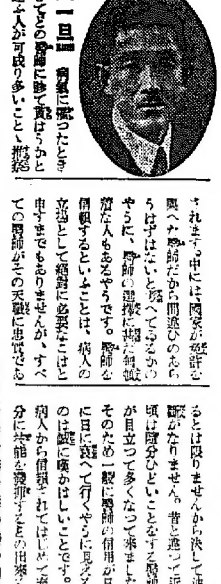 一旦 病氣に罹つたとき
どの醫師に診て貰はうかと
ふ人が可成り多いことゝ
されます。中には、國家が を
與へた醫師だから間違ひのあら
うはずはないと へてゐるかの
やうに、醫師の選擇に
な人もあるやうです。醫師を
信頼するといふことは、病人の
立場として絕對に必要なことは
申すまでもありませんが、すべ
ての醫師がその天職に忠實であ
るとは限りませんから決して油
斷がなりません。昔と違つて近
頃は隨分ひどいことをする醫
が目立つて多くなつて來ました
そのため一般に醫師の信用が日
に日に衰へて行くやうに見える
のは誠に嘆かはしいことです。
病人から信頼されてはじめて充
分に技能を發揮する の出來る